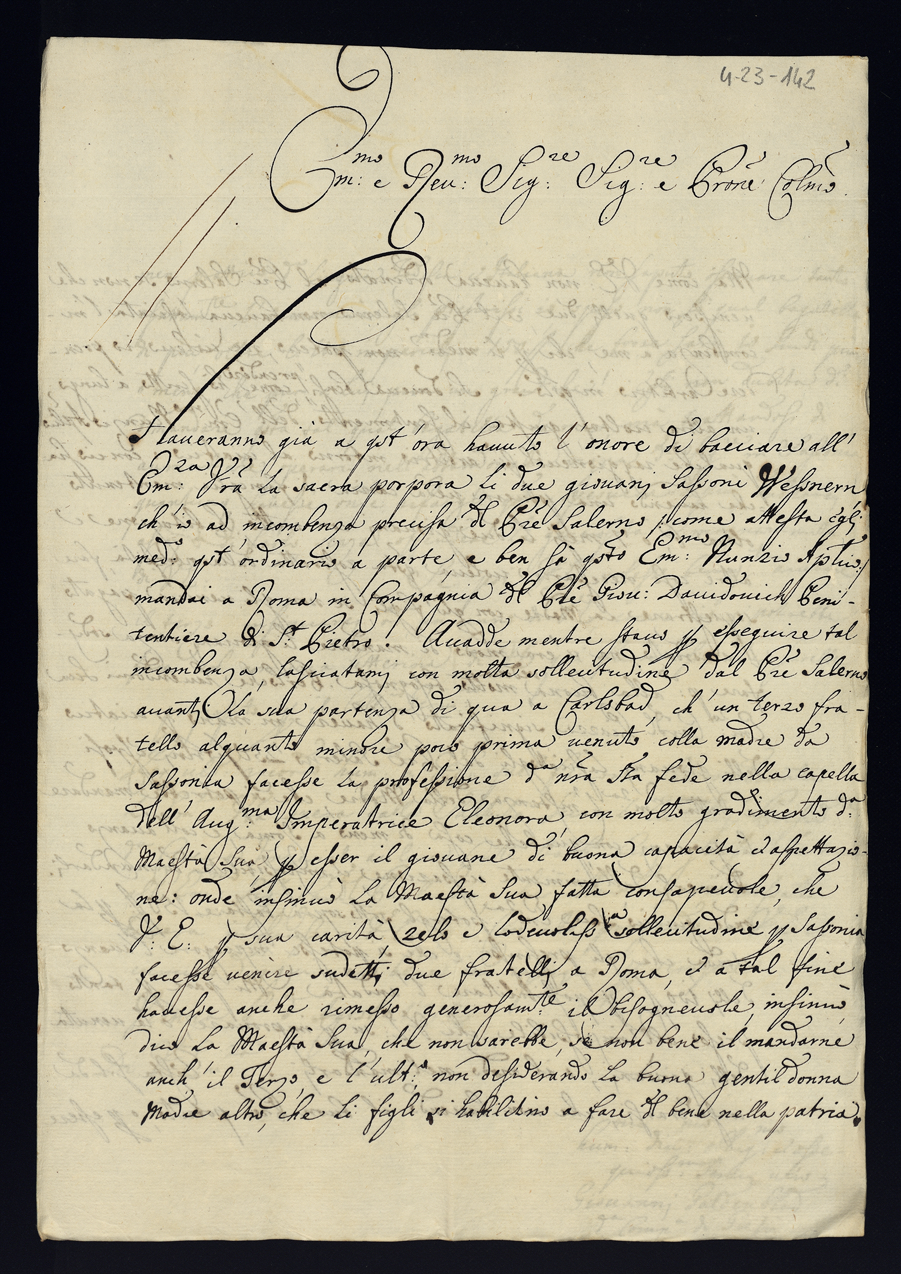 4-23-142
Em:mo e Reu:mo Sig:re Sig:re e Prone Colmo
Haueranno già a qst'ora hauuto l'onore di bacciare all'
Em:za Vra la sacra porpora li due giouanj Sassoni Wessnern
ch'io ad incombenza precisa dl Pre Salerno /: come attesta egli
med:o qst'ordinario a parte, e ben sà qsto Em:mo Nunzio Aplico :/
mandai a Roma in Compagnia dl Pre Giou: Dauidouich Peni-
tentiere di St. Pietro. Accadde mentre stauo p esseguire tal
incombenza, lasciatamj con molta sollecitudine dal Pre Salerno
auantj la sua partenza di qua a Carlsbad, ch'un terzo fra-
tello alquanto minore poco prima venuto colla madre da
Sassonia facesse la professione da nra Sta fede nella capella
dell'Aug:ma Imperatrice Eleonora, con molto gradimento d:a
Maestà Sua, p esser il giouane di buona capacità ed aspettazio-
ne: onde insinuò la Maestà Sua fatta consapeuole, che
V: E: p sua carità, zelo e lodeuoliss:a sollecitudine p Sassonia
facesse uenire sudettj due fratellj a Roma, ed a tal fine
hauesse anche rimesso generosamte il bisogneuole, insinuò
dico la Maestà Sua, che non sarebbe, se non bene il mandarne
anch'il Terzo, e l'ult:o non desiderando la buona gentildonna
Madre altro, che li figli si habilitino a fare dl bene nella patria.